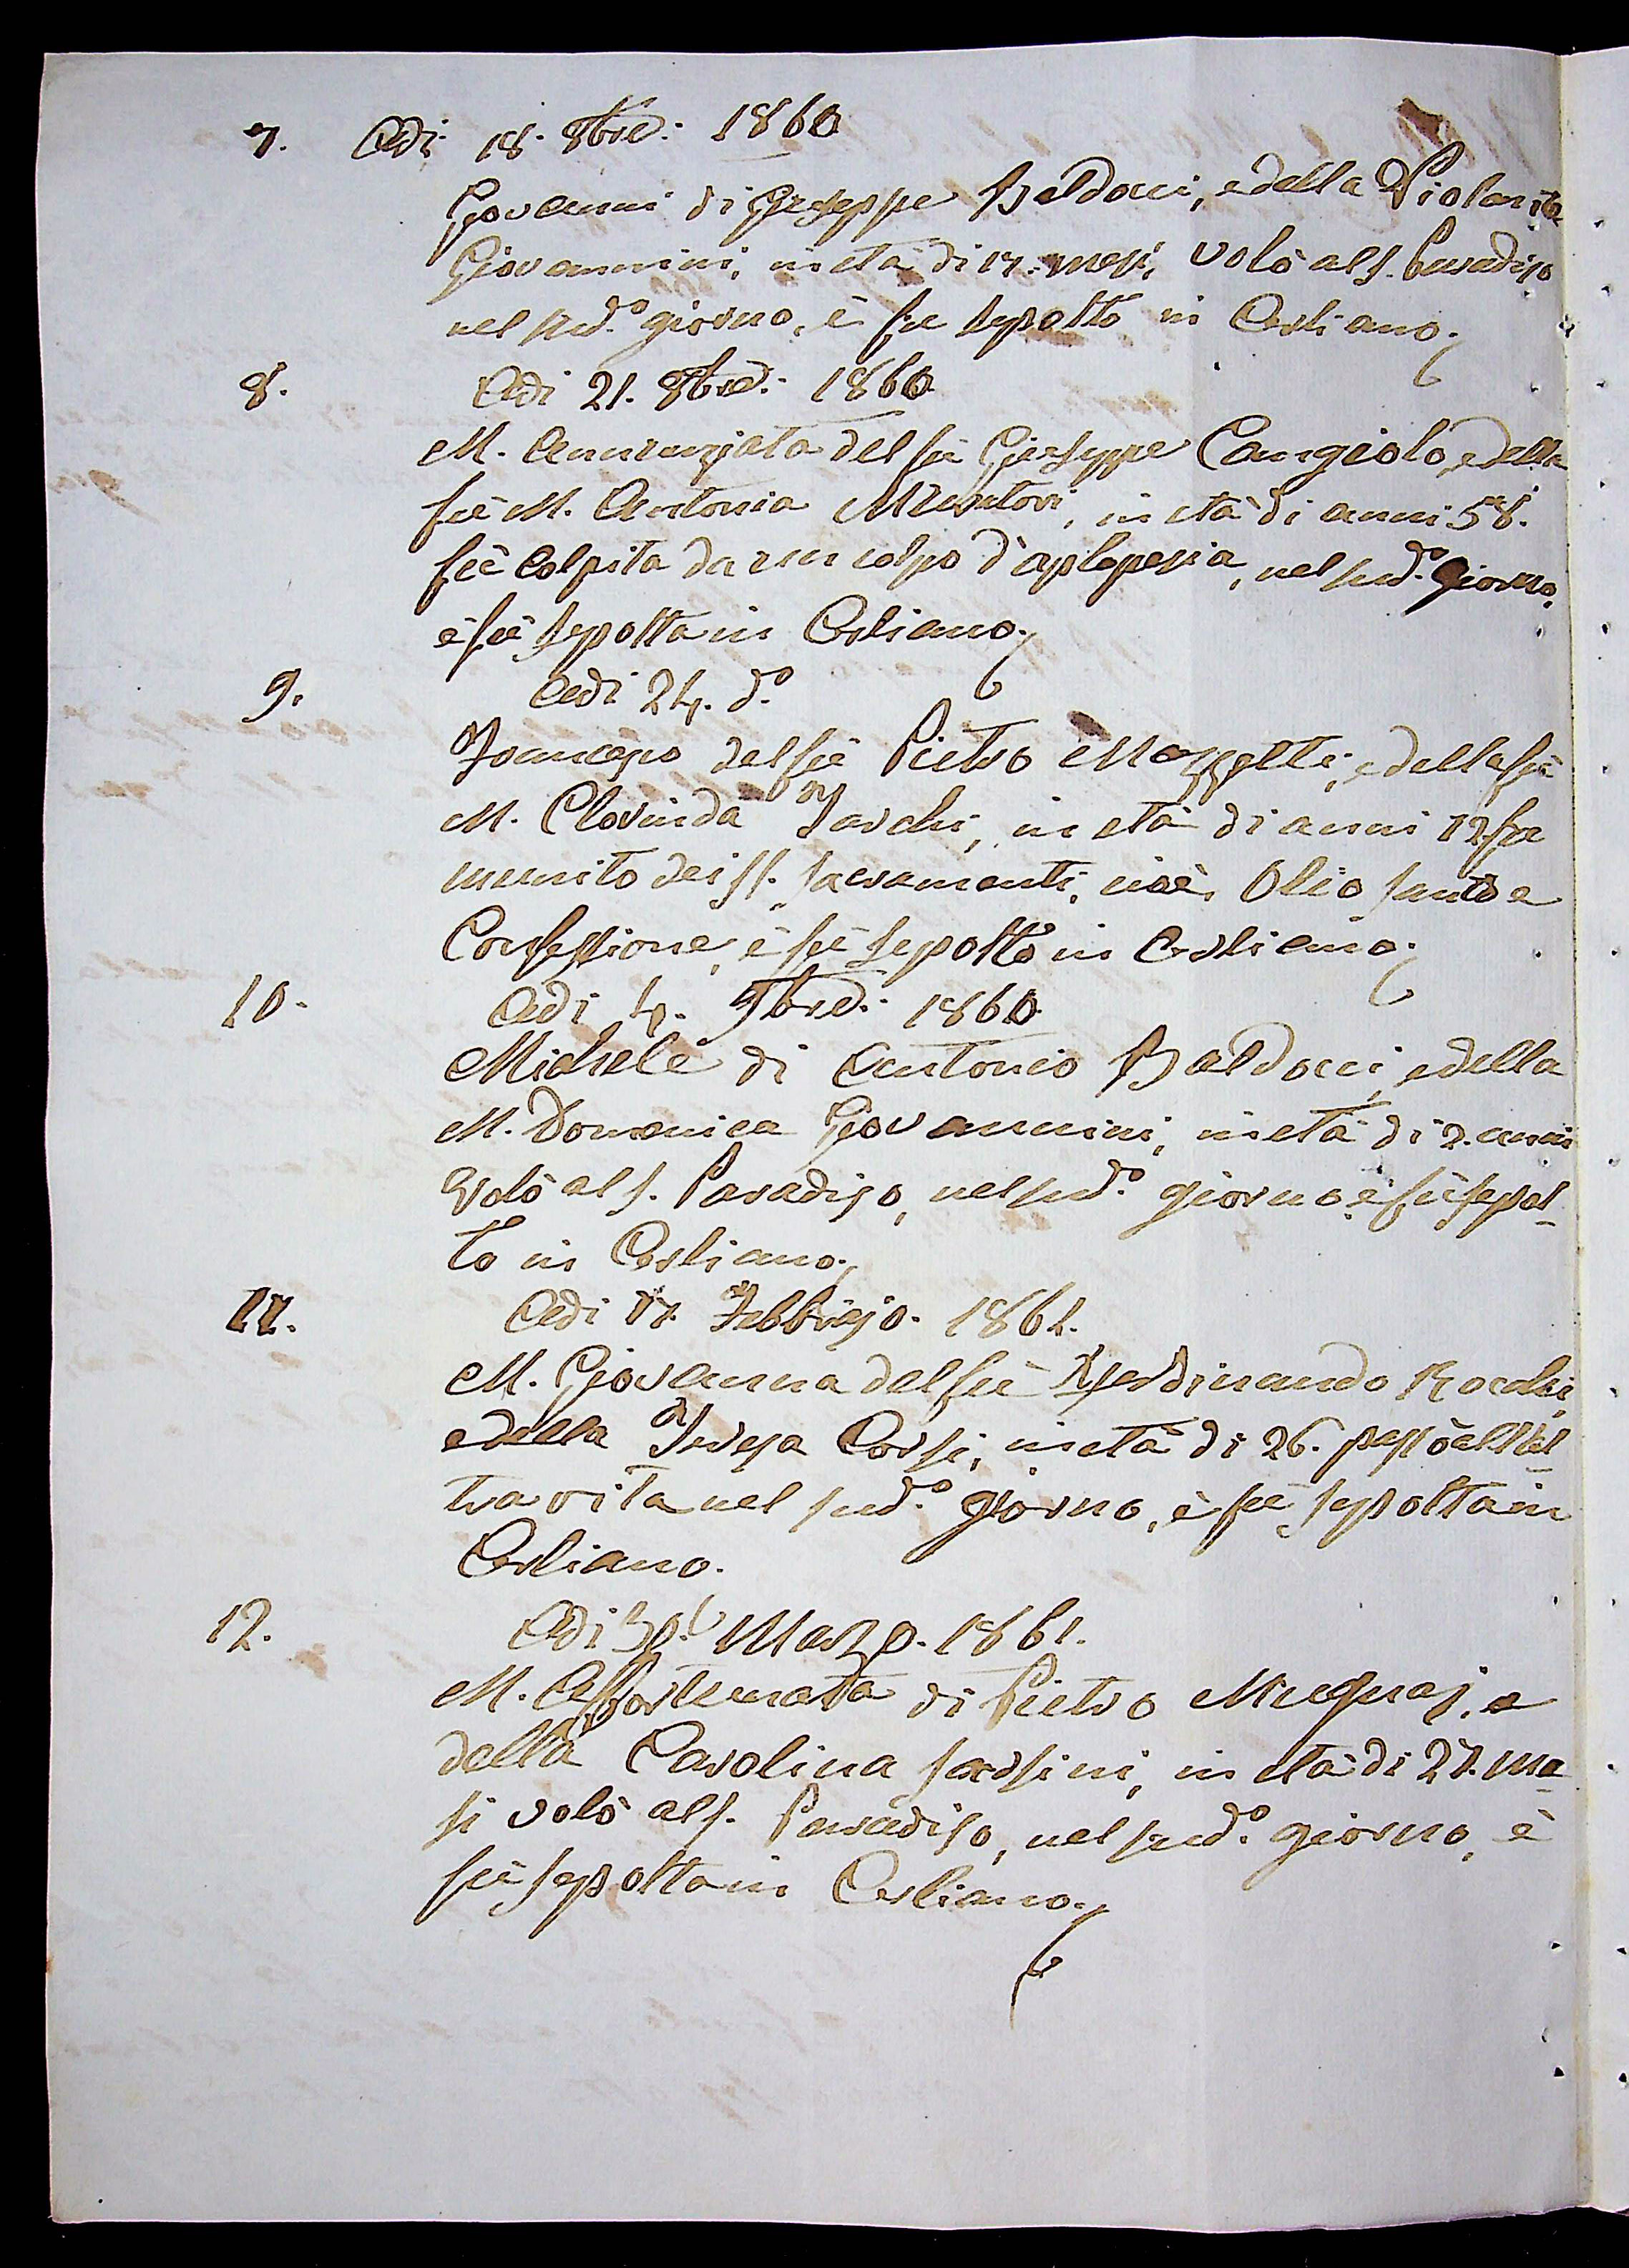 7. Adi 18. 8bre: 1860
Giovanni di Giuseppe Baldocci, e della Violante
Giovannini, in età di 17. mesi, volò al s. Paradiso
nel sud.º giorno, è fu sepolto in Corliano.
8. Adi 21. 8bre: 1860
M. Annunziata del fù Giuseppe Cangiolo, e della
fù M. Antonia, in età di anni 58.
fù colpita da un colpo d'aplopesia, nel sud.º giorno,
è fù sepolta in Corliano.
9. Adi 24. d.º
Francesco del fù Pietro Mazzetti, e della fù
M. Clorinda, in età di anni 12 fu
munito dei SS. Sacramenti, cioè, Olio santo e
Confessione, è fù sepolto in Corliano.
10. Adi 4. 9bre: 1860
Michele di Antonio Baldocci, e della
M. Domenica Giovannini, in età di 2. anni
volò al s. Paradiso, nel sud.º giorno è fù sepol-
to in Corliano.
11. Adi 17. Febbrajo. 1861.
M. Giovanna del fù Ferdinando Rocchi,
e della Teresa Corsi, in età di 26. passò all'al-
tra vita nel sud.º giorno, è fù sepolta in
Corliano.
12. Adi 30. Marzo. 1861.
M. Affortunata di Pietro Mugnaj, e
della Carolina Sarsini, in età di 27. me-
si volò al s. Paradiso, nel sud.º giorno, è
fù sepolta in Corliano.